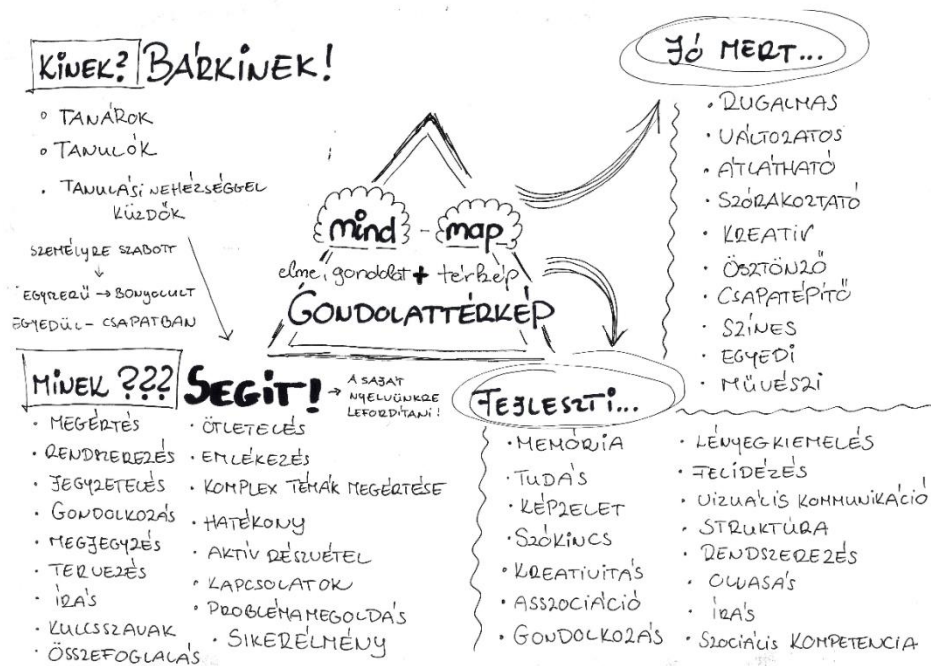 KINEK? BÁRKINEK!
◦ TANÁROK
◦ TANULÓK
• TANULÁSI NEHÉZSÉGGEL
KÜZDŐK
SZEMÉLYRE SZABOTT
↓
EGYSZERŰ → BONYOLULT
EGYEDÜL - CSAPATBAN
mind - map
elme, gondolat + térkép
GONDOLATTÉRKÉP
JÓ MERT...
• RUGALMAS
• VÁLTOZATOS
• ÁTLÁTHATÓ
• SZÓRAKOZTATÓ
• KREATÍV
• ÖSZTÖNZŐ
• CSAPATÉPÍTŐ
• SZÍNES
• EGYEDI
• MŰVÉSZI
MINEK ??? SEGÍT! → A SAJÁT
NYELVÜNKRE
LEFORDÍTANI!
• MEGÉRTÉS
• RENDSZEREZÉS
• JEGYZETELÉS
• GONDOLKOZÁS
• MEGJEGYZÉS
• TERVEZÉS
• ÍRÁS
• KULCSSZAVAK
• ÖSSZEFOGLALÁS
• ÖTLETELÉS
• EMLÉKEZÉS
• KOMPLEX TÉMÁK MEGÉRTÉSE
• HATÉKONY
• AKTÍV RÉSZVÉTEL
• KAPCSOLATOK
• PROBLÉMAMEGOLDÁS
• SIKERÉLMÉNY
FEJLESZTI...
• MEMÓRIA
• TUDÁS
• KÉPZELET
• SZÓKINCS
• KREATIVITÁS
• ASSZOCIÁCIÓ
• GONDOLKOZÁS
• LÉNYEGKIEMELÉS
• FELIDÉZÉS
• VIZUÁLIS KOMMUNIKÁCIÓ
• STRUKTÚRA
• RENDSZEREZÉS
• OLVASÁS
• ÍRÁS
• SZOCIÁLIS KOMPETENCIA